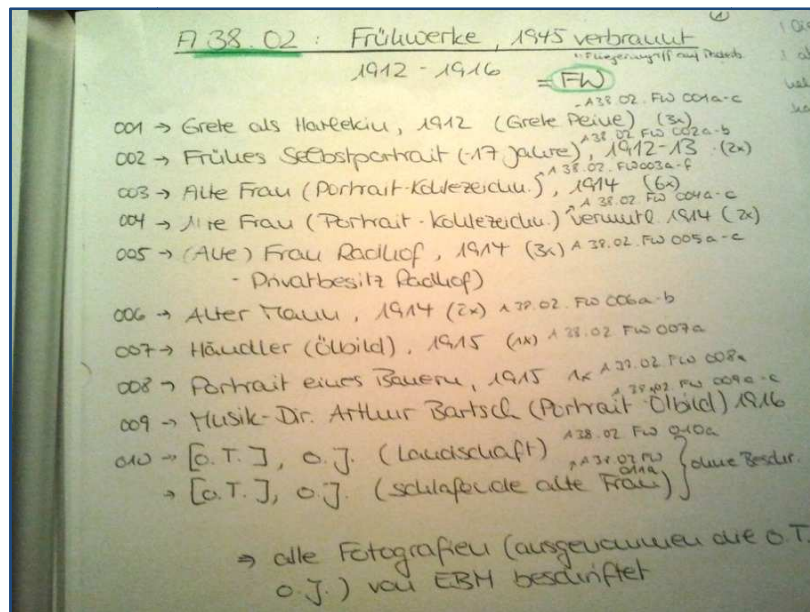 ①
A 38.02 : Frühwerke, 1945 verbrannt
1912 - 1916
= FW
A 38.02. FW 001a-c
001 → Grete als Harlekin, 1912 (Grete Peine) (3x)
A 38.02. FW 002a-b
002 → Frühes Selbstportrait (-17 Jahre), 1912-13 (2x)
A 38.02. FW 003a-f
003 → Alte Frau (Portrait-Kohlezeichn.), 1914 (6x)
A 38.02. FW 004a-c
004 → Frau (Portrait-Kohlezeichn.) vermutl. 1914 (2x)
005 → (Alte) Frau Radhof, 1914 (3x) A 38.02. FW 005a-c
- Privatbesitz Radhof)
006 → Alter Mann, 1914 (2x) A 38.02. FW 006a-b
007 → Händler (Ölbild), 1915 (1x) A 38.02 FW 007a
008 → Portrait eines Bauern, 1915 1x A 38.02 FW 008a
A 38.02. FW 009a-c
009 → Musik-Dir. Arthur Bartsch (Portrait-Ölbild) 1916
010 → [o.T.], o.J. (Landschaft) A 38.02 FW 010a
→ [o.T.], o.J. (schlafende alte Frau) A 38.02 FW 011a } ohne Beschr.
⇒ alle Fotografien (ausgenommen die o.T.
o.J.) von EBM beschriftet